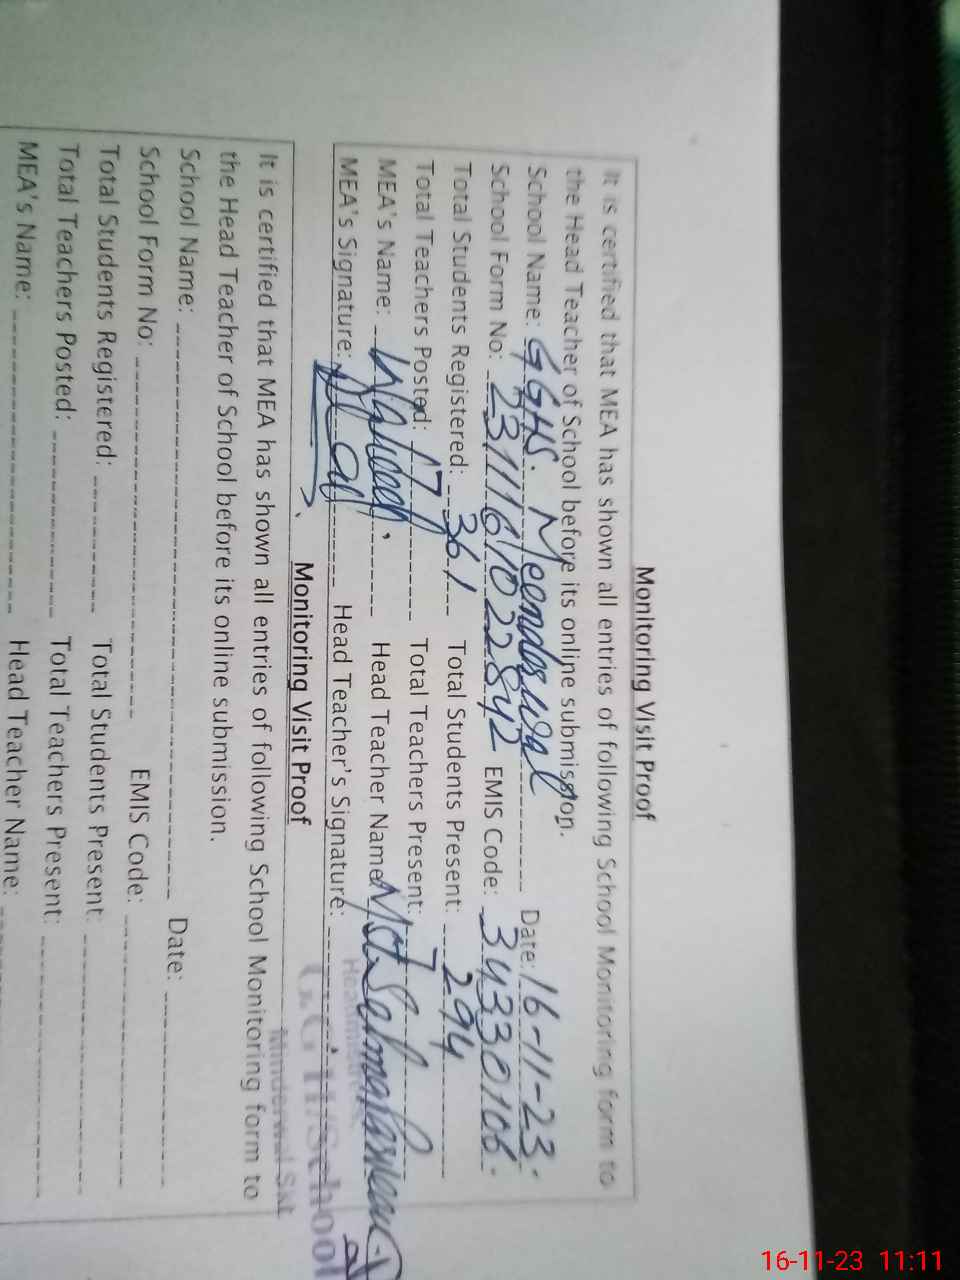 Monitoring Visit Proof
It is certified that MEA has shown all entries of following School Monitoring form to
the Head Teacher of School before its online submission.
School Name: GGHS. Meenderwal Date: 16-11-23.
School Form No: 2311161022842 EMIS Code: 34330106.
Total Students Registered: 361 Total Students Present: 294
Total Teachers Posted: 7 Total Teachers Present: 7
MEA's Name: Waheed Head Teacher Name: Mst. Salma
MEA's Signature: Head Teacher's Signature:
Headmistress
G.G.H/School
Minderwal Skt
Monitoring Visit Proof
It is certified that MEA has shown all entries of following School Monitoring form to
the Head Teacher of School before its online submission.
School Name: Date:
School Form No: EMIS Code:
Total Students Registered: Total Students Present:
Total Teachers Posted: Total Teachers Present:
MEA's Name: Head Teacher Name:
16-11-23 11:11